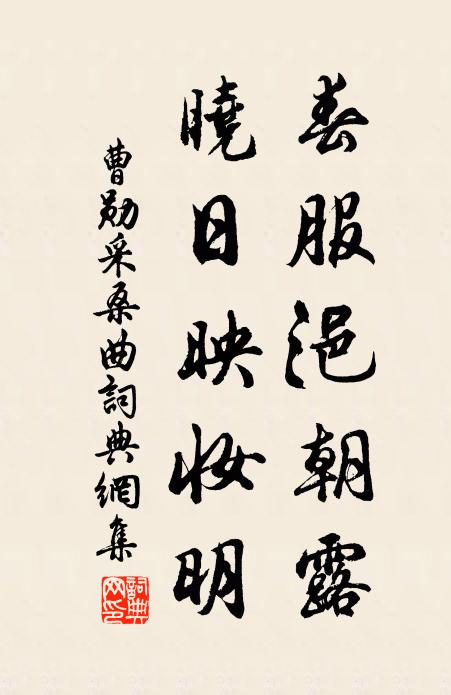 春服浥朝露
曉日映妝明
曹勛采桑曲詞典網集
詞典网印